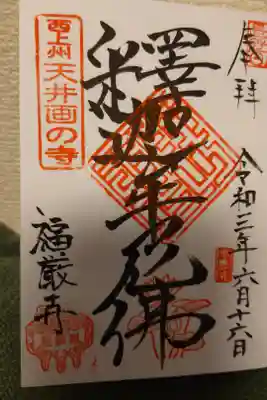 奉拝
令和三年六月十六日
釋迦牟尼佛
西上州
天井画の寺
福厳寺